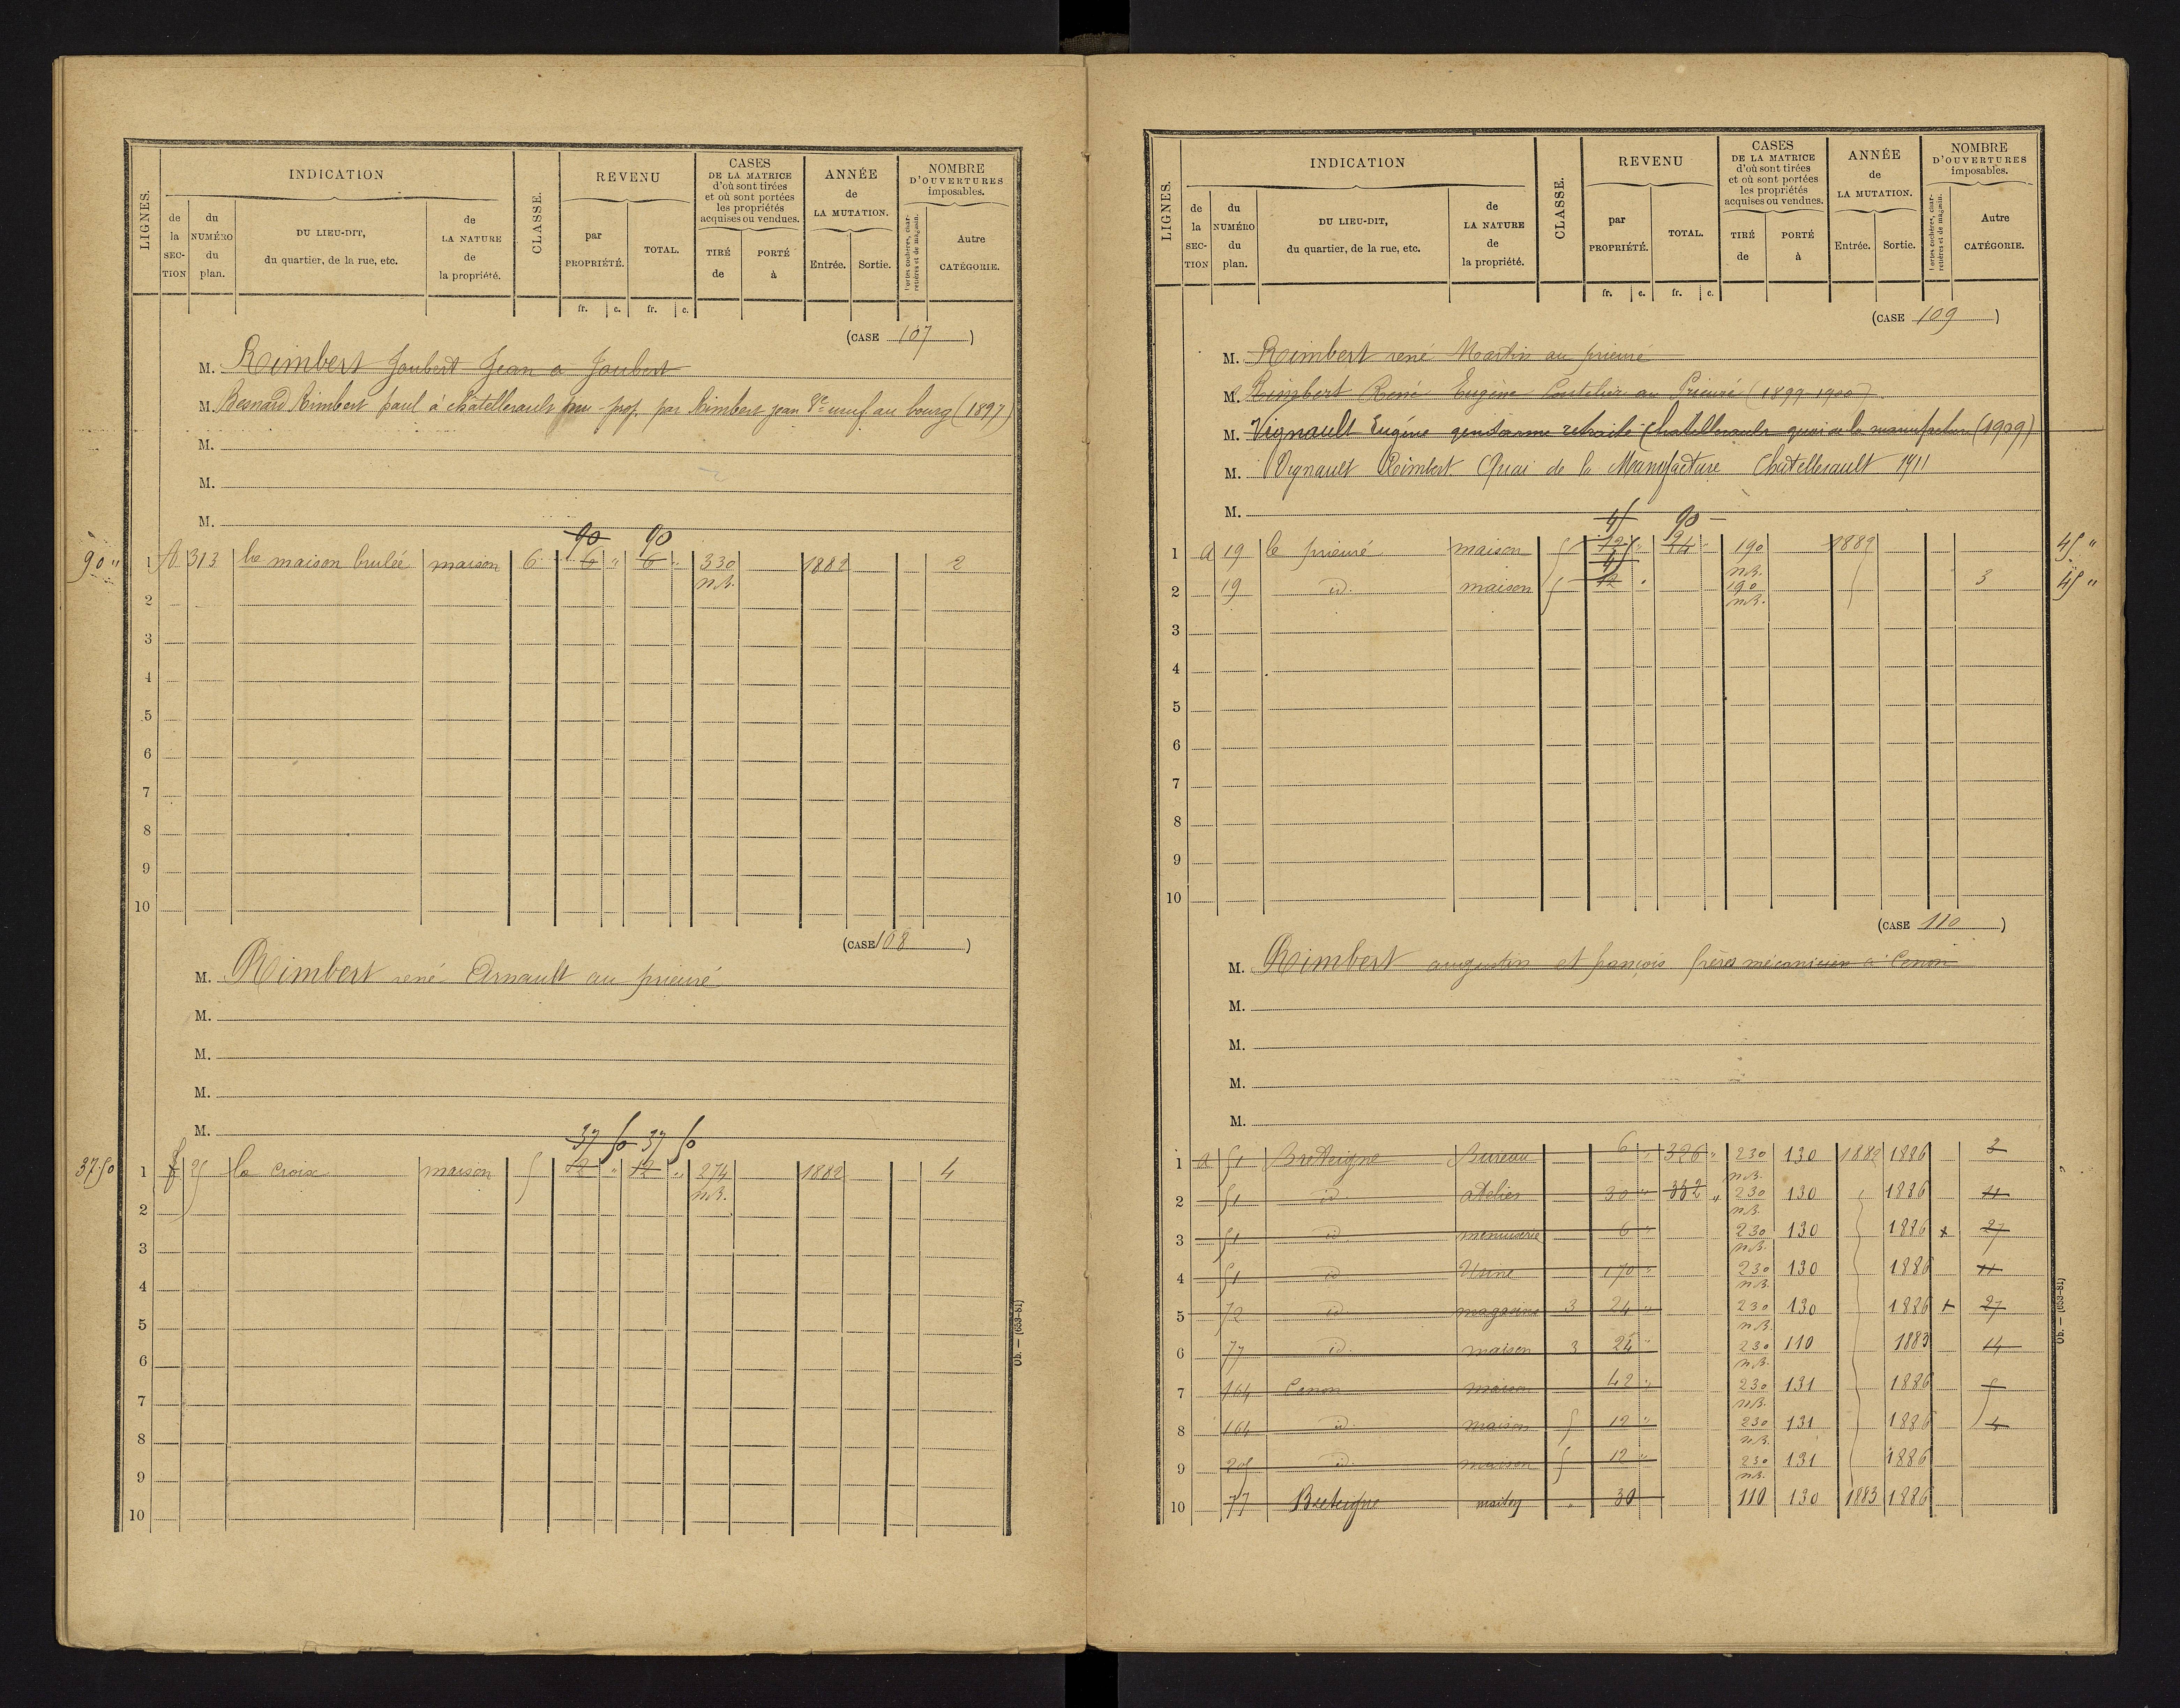 LIGNES.
INDICATION
CLASSE.
REVENU
CASES
DE LA MATRICE
d'où sont tirées
et où sont portées
les propriétés
acquises ou vendues.
ANNÉE
de
LA MUTATION.
NOMBRE
D'OUVERTURES
imposables.
de la SECTION
du NUMÉRO du plan.
DU LIEU-DIT,
du quartier, de la rue, etc.
de LA NATURE de la propriété.
par PROPRIÉTÉ.
TOTAL.
TIRÉ de
PORTÉ à
Entrée.
Sortie.
Portes cochères, charretières et de magasin.
Autre CATÉGORIE.
fr. c. fr. c.
(CASE 107)
M. Rimbert Joubert Jean a Joubert
M. Besnard Rimbert paul à chatellerault nu-prop. par Rimbert jean Vve neuf au bourg (1897)
M.
M.
M.
90 90
90 " 1 A 313 la maison brulée maison 6 6 " 6 " 330 1882 2
n.B.
2
3
4
5
6
7
8
9
10
(CASE 108)
M. Rimbert rené Arnault au prieuré
M.
M.
M.
M.
37 50 37 50
37 50 1 25 la croix maison 5 12 " 12 " 274 1882 4
n.B.
2
3
4
5
6
7
8
9
10
Ob. — (653-81)
LIGNES.
INDICATION
CLASSE.
REVENU
CASES
DE LA MATRICE
d'où sont tirées
et où sont portées
les propriétés
acquises ou vendues.
ANNÉE
de
LA MUTATION.
NOMBRE
D'OUVERTURES
imposables.
de la SECTION
du NUMÉRO du plan.
DU LIEU-DIT,
du quartier, de la rue, etc.
de LA NATURE de la propriété.
par PROPRIÉTÉ.
TOTAL.
TIRÉ de
PORTÉ à
Entrée.
Sortie.
Portes cochères, charretières et de magasin.
Autre CATÉGORIE.
fr. c. fr. c.
(CASE 109)
M. Rimbert rené Martin au prieuré
M. Rimbert René Eugène Coutelier au Prieuré (1899-1900)
M. Vignault Eugène gendarme retraité Chatellerault quai de la manufacture (1909)
M. Vignault Rimbert Quai de la Manufacture Chatellerault 1911
M.
45 90
1 a 19 le prieuré maison 5 12 " 24 " 190 1882 45 "
n.B.
45
2 19 id. maison 5 12 " 190 3 45 "
n.B.
3
4
5
6
7
8
9
10
(CASE 110)
M. Rimbert augustin et françois frères mécaniciens à Cenon
M.
M.
M.
M.
1 a 51 Breteigne Bureau 6 " 326 " 230 130 1882 1886 2
n.B.
2 51 id. atelier 30 " 332 " 230 130 1886 11
n.B.
3 51 id. menuiserie 6 " 230 130 1886 + 27
n.B.
4 51 id. Usine 170 " 230 130 1886 11
n.B.
5 72 id. magasins 3 24 " 230 130 1886 + 27
n.B.
6 77 id. maison 3 24 " 230 110 1883 14
n.B.
7 164 Cenon maison 42 " 230 131 1886 5
n.B.
8 164 id. maison 5 12 " 230 131 1886 4
n.B.
9 205 id. maison 5 12 " 230 131 1886
n.B.
10 77 Breteigne maison " 30 110 130 1883 1886
Ob. — (653-81)